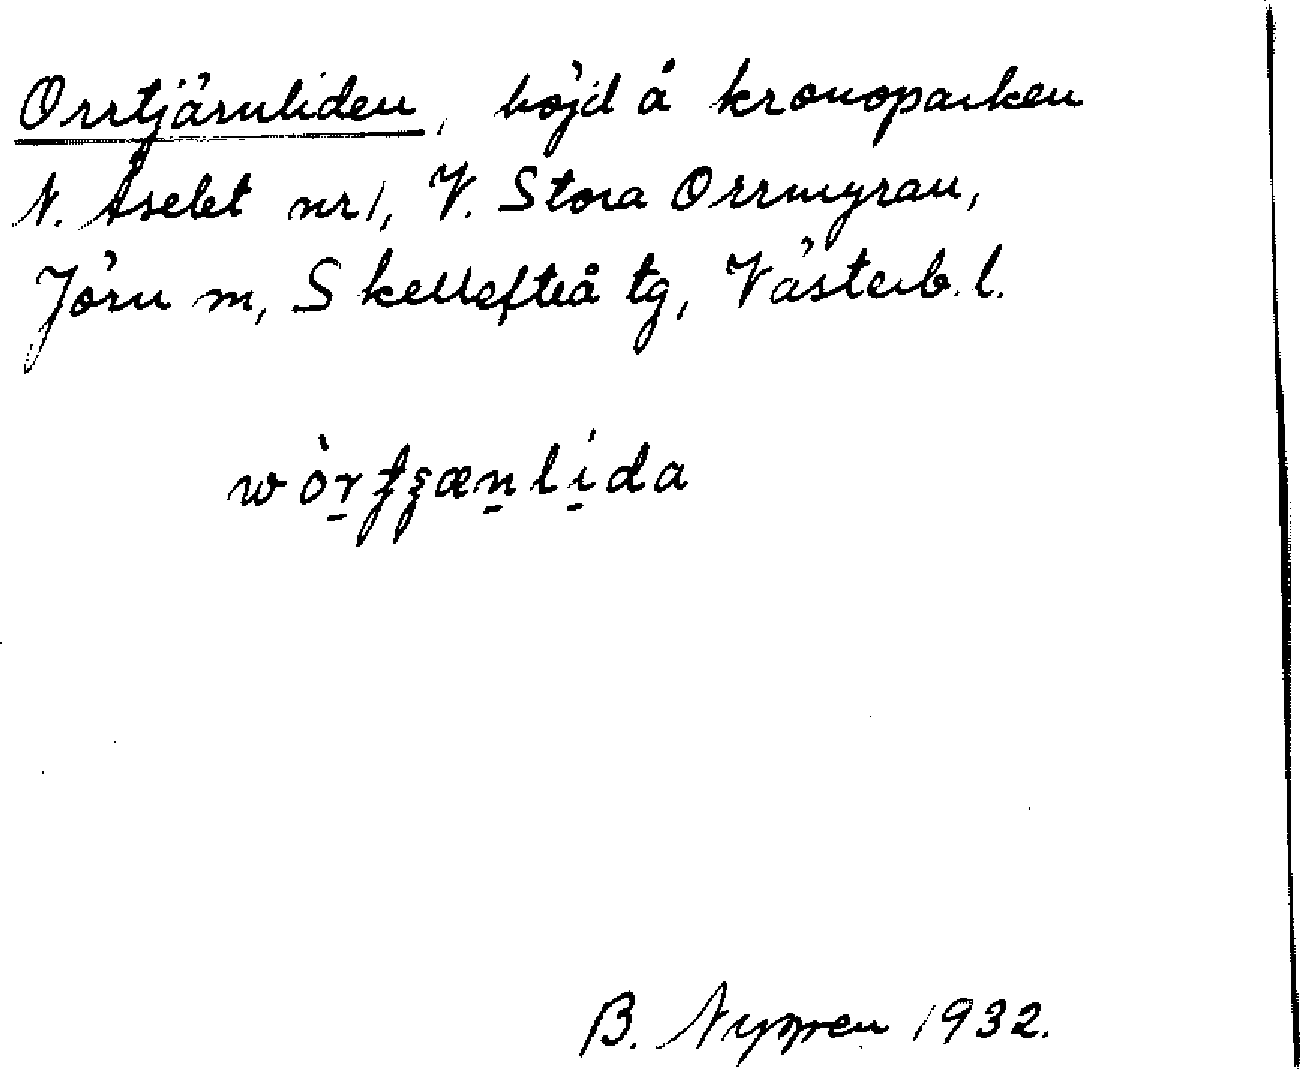 Orrtjärnliden, höjd å kronoparken
N. Åselet nr 1, V. Stora Orrmyran,
Jörn m, Skellefteå tg, Västerb. l.
B. 1932.